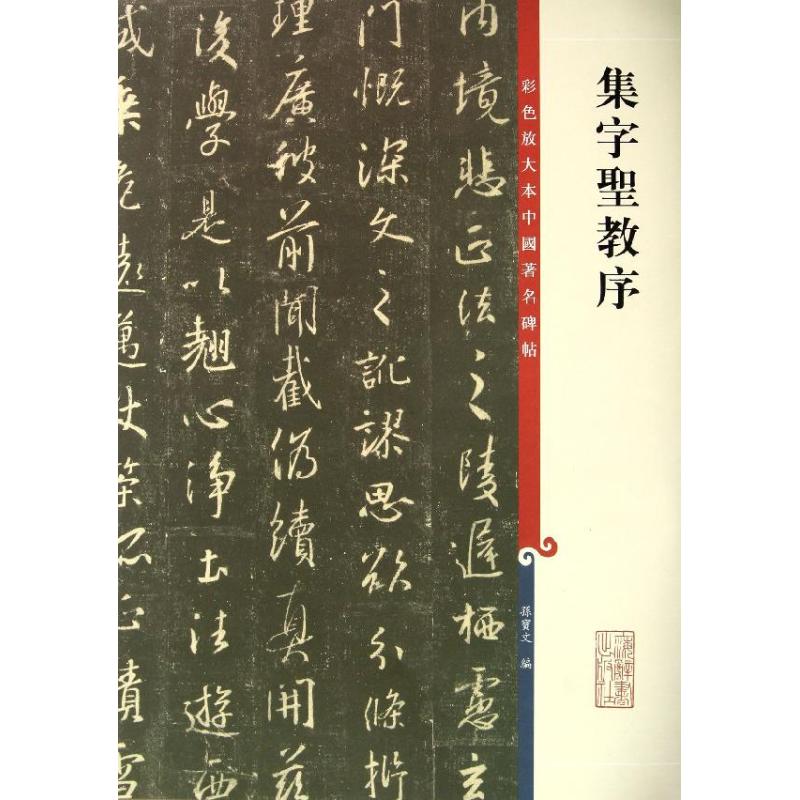 集字聖教序
彩色放大本中國著名碑帖
孫寶文 編
內境悲正法之陵遲栖慮玄
門慨深文之訛謬思欲分條析
理廣彼前聞截偽續真開茲
後學是以翹心淨土往遊西
域乘危遠邁杖策孤征積雪